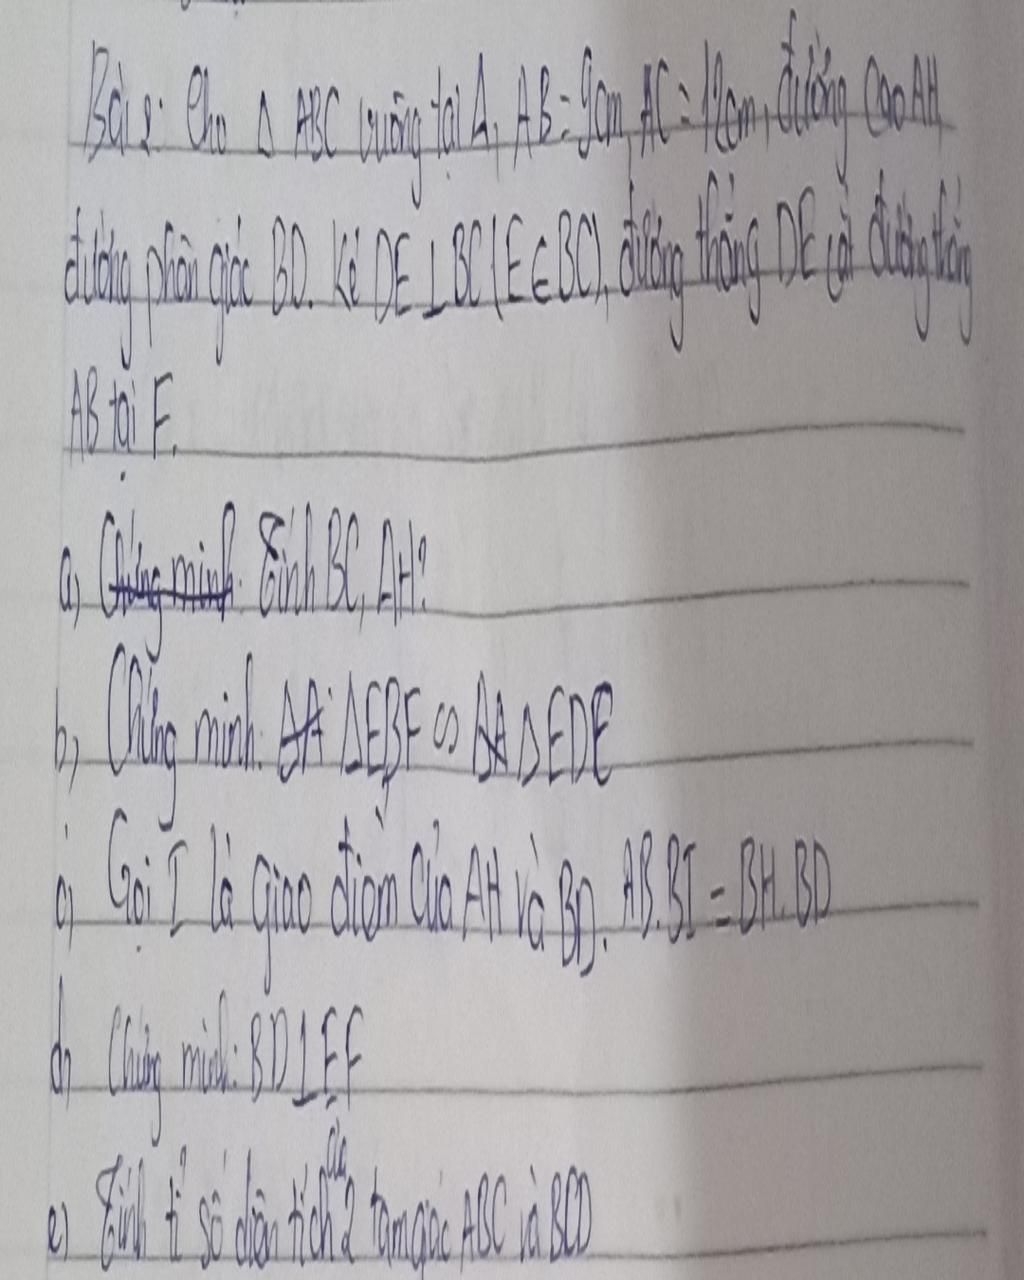 Bài 2: Cho Δ ABC vuông tại A, AB = 9cm, AC = 12cm, đường cao AH,
đường phân giác BD. Kẻ DE ⊥ BC (E ∈ BC), đường thẳng DE cắt đường thẳng
AB tại F.
a) Chứng minh: Tính BC, AH?
b) Chứng minh: ΔEBF ∽ ΔEDC
c) Gọi I là giao điểm của AH và BD. AB.BI = BH.BD
d) Chứng minh: BD ⊥ EF
e) Tính tỉ số diện tích của 2 tam giác ABC và BCD